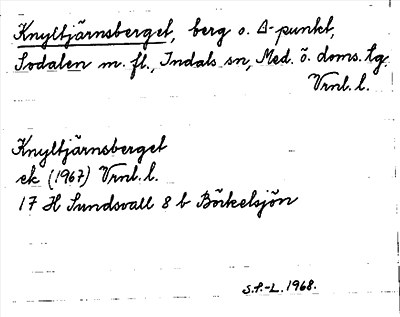 Knyltjärnsberget, berg o. Δ-punkt,
Sodalen m. fl., Indals sn, Med. ö. doms. tg.
Vrnl. l.
Knyltjärnsberget
ek (1967) Vrnl. l.
17 H Sundsvall 8 b Börkelsjön
S.P.-L. 1968.